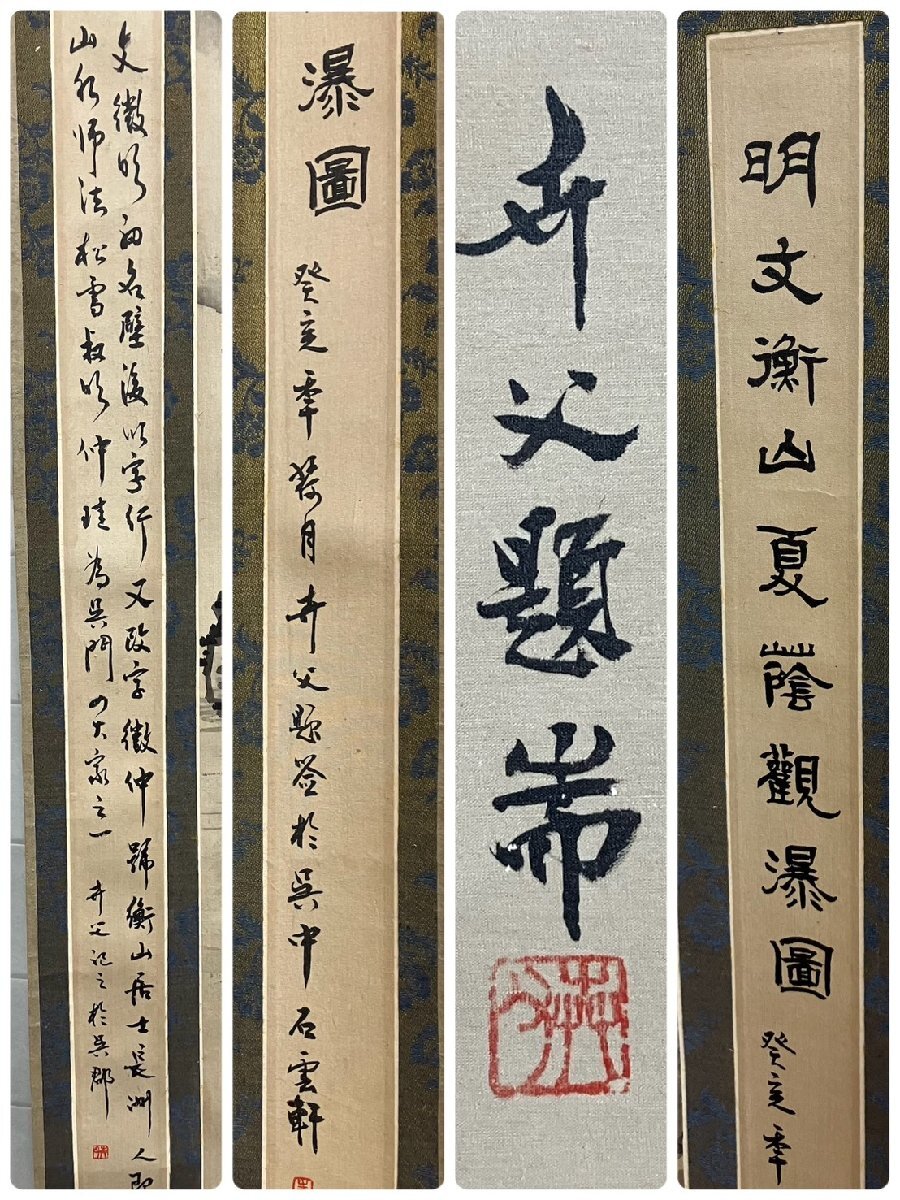 明文衡山夏蔭觀瀑圖
癸亥年
卉父題耑
瀑圖
癸亥年荷月卉父題签於吳中石雲軒
文徵明初名壁後以字行又改字徵仲號衡山居士長洲人
山水师法松雪叔明仲珪為吳门四大家之一 卉父記之於吳郡